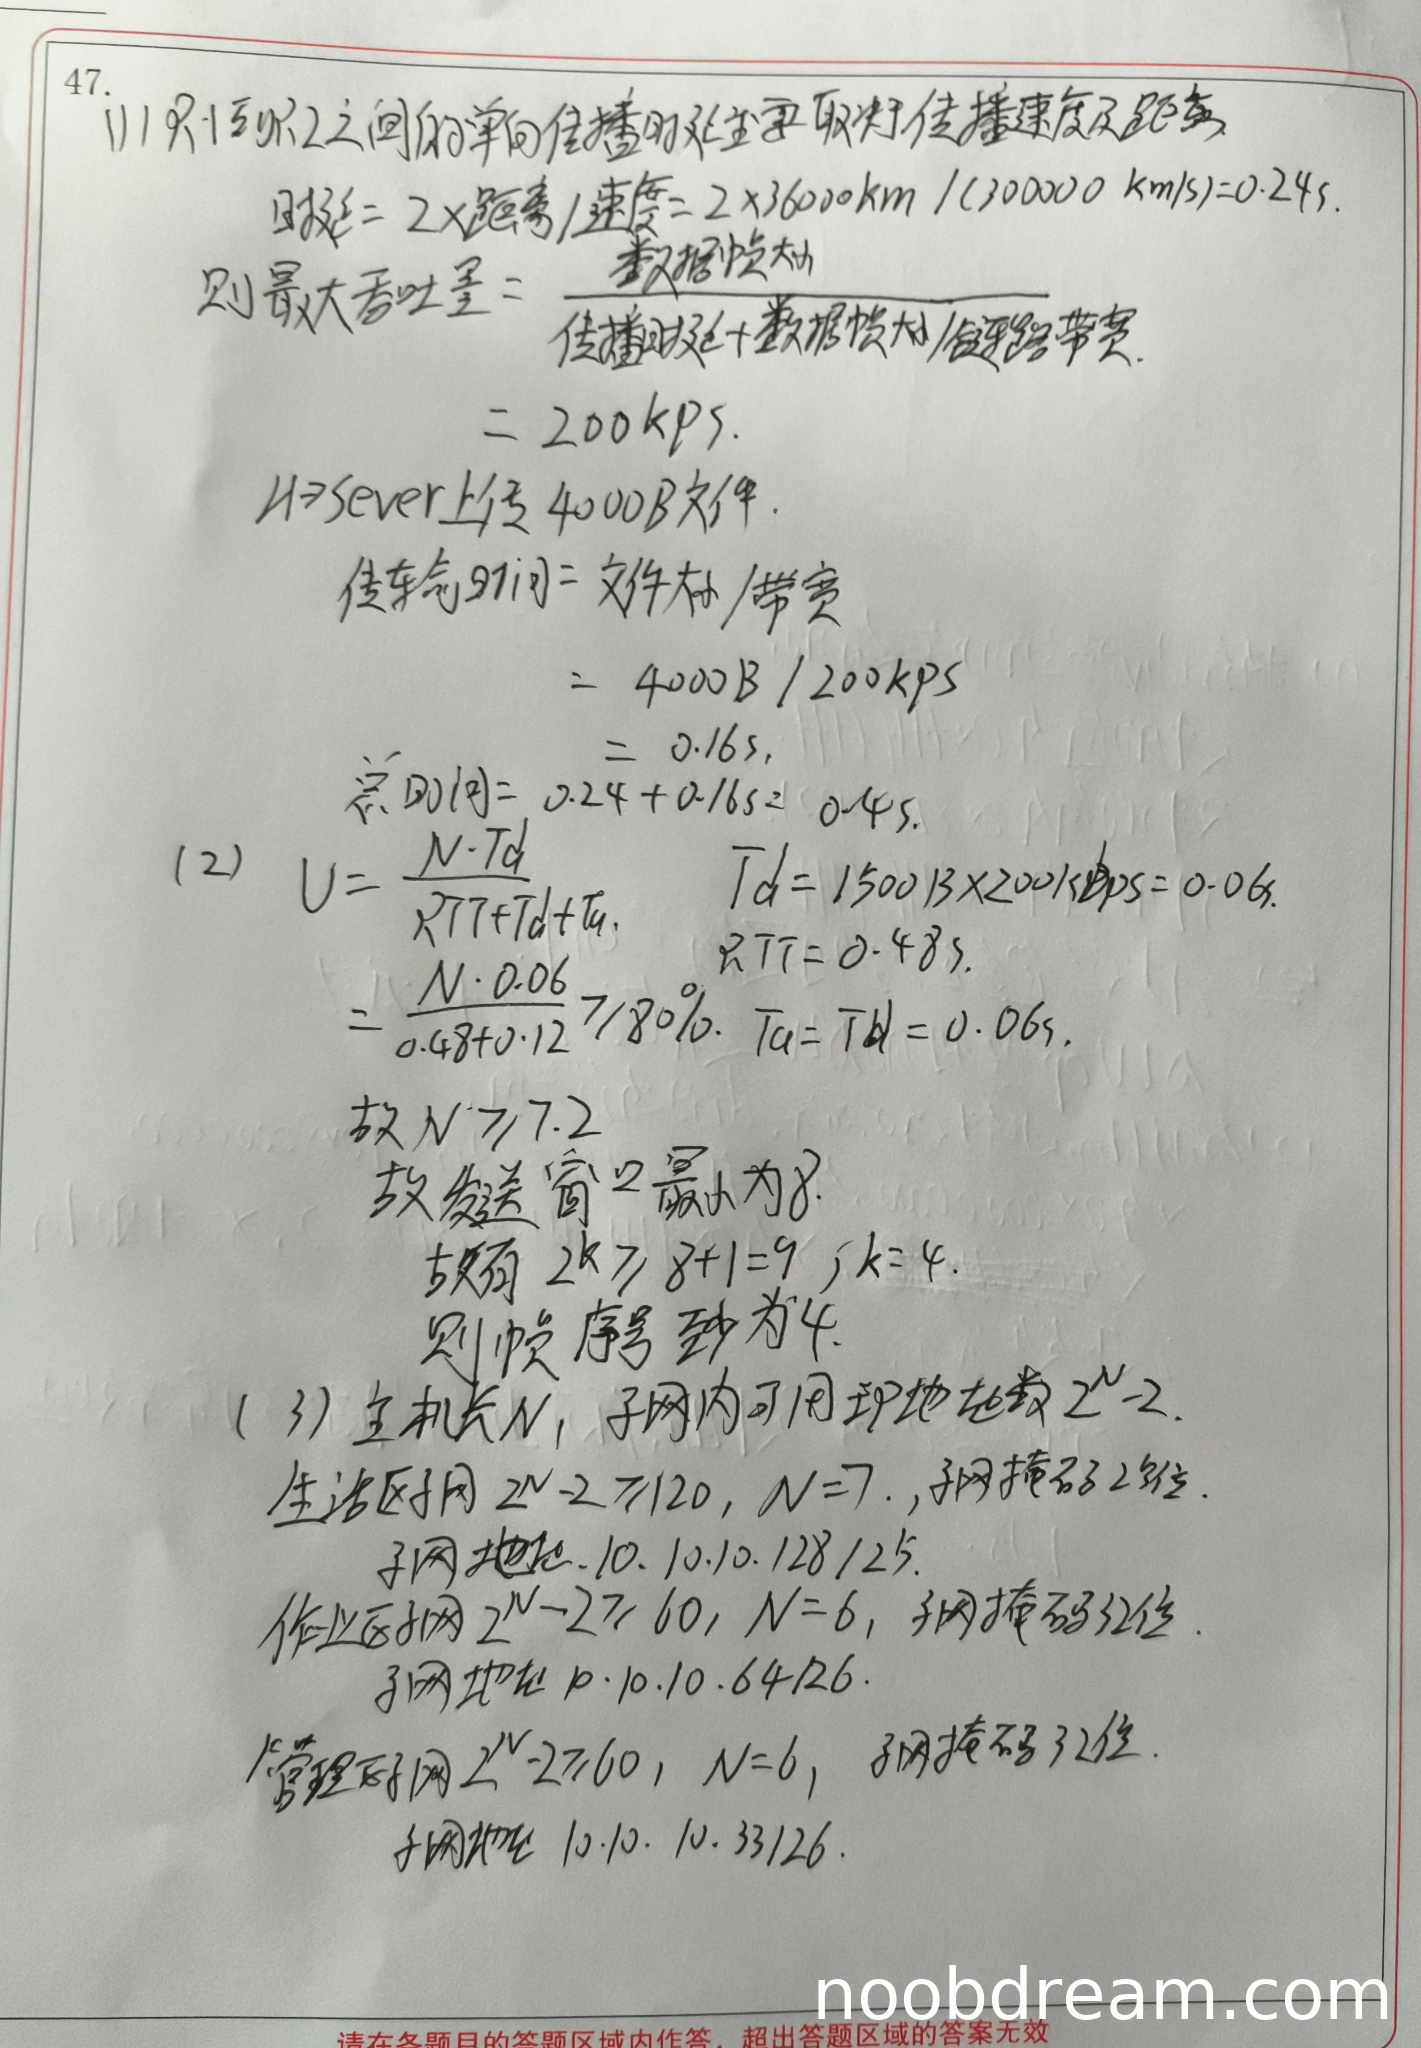 47.
(1) R1与R2之间的单向传播时延主要取决于传播速度及距离
时延 = 2×距离/速度 = 2×36000km/(300000 km/s)=0.24s.
则最大吞吐量 = 数据帧大小
传播时延+数据帧大小/链路带宽.
= 200kps.
H→Sever上传 4000B文件.
传输时间 = 文件大小/带宽
= 4000B/200kps
= 0.16s.
总时间 = 0.24+0.16s= 0.4s.
(2) U = N·Td / RTT+Td+Ta. Td = 1500B×200kbps = 0.06s.
RTT = 0.48s.
= N·0.06 / 0.48+0.12 ≥80%. Ta = Td = 0.06s.
故 N ≥ 7.2
故发送窗口最小为8.
故有 2^k ≥ 8+1=9, k=4.
则帧序号至少为4.
(3) 主机长N, 子网内可用IP地址数 2^N-2.
生活区子网 2^N-2≥120, N=7., 子网掩码25位.
子网地址.10.10.10.128/25.
作业区子网 2^N-2≥60, N=6, 子网掩码32位.
子网地址 10.10.10.64/26.
管理区子网 2^N-2≥60, N=6, 子网掩码32位.
子网地址 10.10.10.33/26.
noobdream.com
请在各题目的答题区域内作答，超出答题区域的答案无效